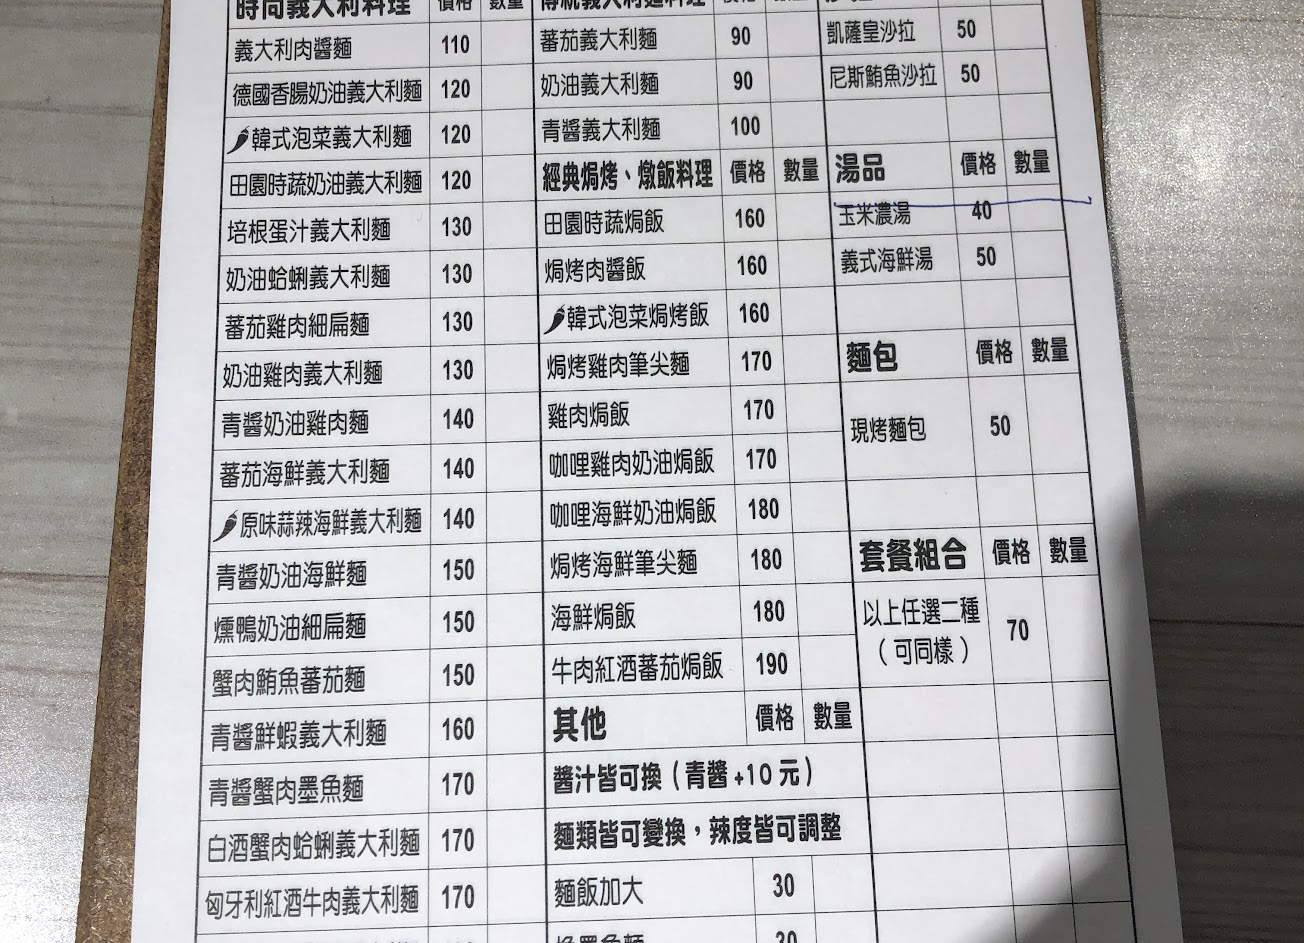 時尚義大利料理 價格 數量
義大利肉醬麵 110
德國香腸奶油義大利麵 120
韓式泡菜義大利麵 120
田園時蔬奶油義大利麵 120
培根蛋汁義大利麵 130
奶油蛤蜊義大利麵 130
蕃茄雞肉細扁麵 130
奶油雞肉義大利麵 130
青醬奶油雞肉麵 140
蕃茄海鮮義大利麵 140
原味蒜辣海鮮義大利麵 140
青醬奶油海鮮麵 150
燻鴨奶油細扁麵 150
蟹肉鮪魚蕃茄麵 150
青醬鮮蝦義大利麵 160
青醬蟹肉墨魚麵 170
白酒蟹肉蛤蜊義大利麵 170
匈牙利紅酒牛肉義大利麵 170
傳統義大利麵料理 價格 數量
蕃茄義大利麵 90
奶油義大利麵 90
青醬義大利麵 100
經典焗烤、燉飯料理 價格 數量
田園時蔬焗飯 160
焗烤肉醬飯 160
韓式泡菜焗烤飯 160
焗烤雞肉筆尖麵 170
雞肉焗飯 170
咖哩雞肉奶油焗飯 170
咖哩海鮮奶油焗飯 180
焗烤海鮮筆尖麵 180
海鮮焗飯 180
牛肉紅酒蕃茄焗飯 190
其他 價格 數量
醬汁皆可換（青醬+10元）
麵類皆可變換，辣度皆可調整
麵飯加大 30
換墨魚麵 20
凱薩皇沙拉 50
尼斯鮪魚沙拉 50
湯品 價格 數量
玉米濃湯 40
義式海鮮湯 50
麵包 價格 數量
現烤麵包 50
套餐組合 價格 數量
以上任選二種 70
（可同樣）